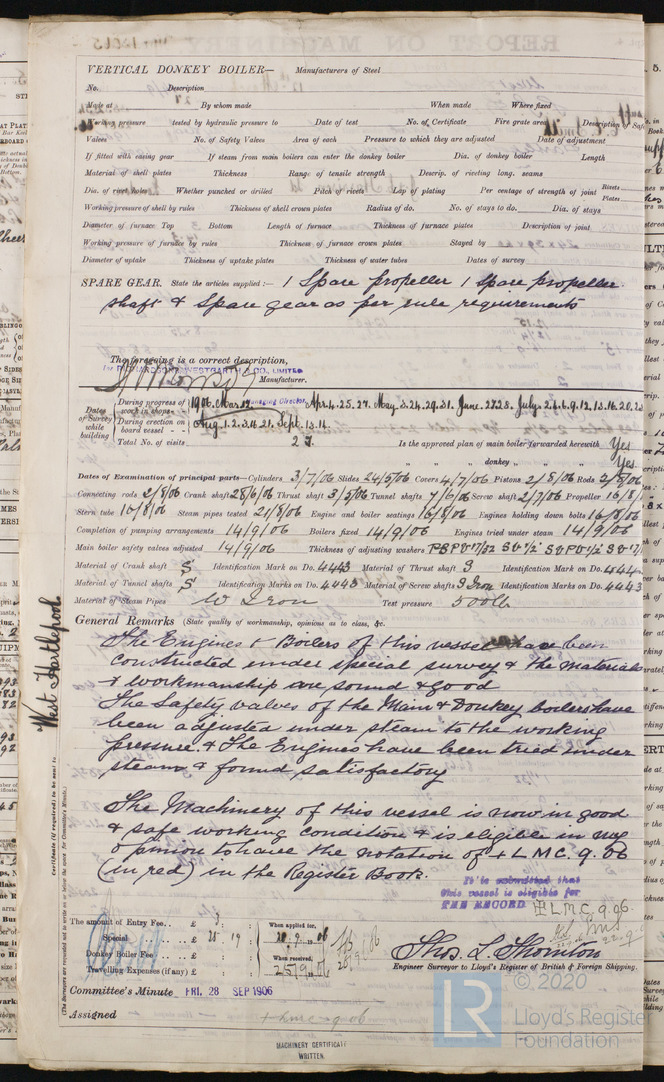 VERTICAL DONKEY BOILER— Manufacturers of Steel
No. Description
Made at By whom made When made Where fixed
Working pressure tested by hydraulic pressure to Date of test No. of Certificate Fire grate area Description of Safety
Valves No. of Safety Valves Area of each Pressure to which they are adjusted Date of adjustment
If fitted with easing gear If steam from main boilers can enter the donkey boiler Dia. of donkey boiler Length
Material of shell plates Thickness Range of tensile strength Descrip. of riveting long. seams
Dia. of rivet holes Whether punched or drilled Pitch of rivets Lap of plating Per centage of strength of joint Rivets Plates
Working pressure of shell by rules Thickness of shell crown plates Radius of do. No. of stays to do. Dia. of stays
Diameter of furnace Top Bottom Length of furnace Thickness of furnace plates Description of joint
Working pressure of furnace by rules Thickness of furnace crown plates Stayed by
Diameter of uptake Thickness of uptake plates Thickness of water tubes Dates of survey
SPARE GEAR. State the articles supplied:— 1 Spare propeller 1 Spare propeller
shaft & Spare gear as per rule requirements
The foregoing is a correct description,
For RICHARDSONS, WESTGARTH & CO., LIMITED
Manufacturer.
Managing Director
Dates of Survey while building
During progress of work in shops 1906. Mar. 12. Apr. 4. 25. 27. May. 3. 24. 29. 31. June. 27 28. July. 2. 4. 6. 9. 12. 13. 16. 20. 2
During erection on board vessel Aug. 1. 2. 3. 16. 21. Sept. 13. 14.
Total No. of visits 27. Is the approved plan of main boiler forwarded herewith Yes
" " donkey " " " Yes
Dates of Examination of principal parts—Cylinders 3/7/06 Slides 24/5/06 Covers 4/7/06 Pistons 2/8/06 Rods 2/8/06
Connecting rods 2/8/06 Crank shaft 28/6/06 Thrust shaft 3/5/06 Tunnel shafts 7/6/06 Screw shaft 2/7/06 Propeller 16/8/
Stern tube 16/8/06 Steam pipes tested 21/8/06 Engine and boiler seatings 16/8/06 Engines holding down bolts 16/8/06
Completion of pumping arrangements 14/9/06 Boilers fixed 14/9/06 Engines tried under steam 14/9/06
Main boiler safety valves adjusted 14/9/06 Thickness of adjusting washers
Material of Crank shaft S Identification Mark on Do. 4443 Material of Thrust shaft S Identification Mark on Do. 444
Material of Tunnel shafts S Identification Marks on Do. 4443 Material of Screw shafts S Iron Identification Marks on Do. 4443
Material of Steam Pipes W Iron Test pressure 500 lb
General Remarks (State quality of workmanship, opinions as to class, &c.
The Engines & Boilers of this vessel have been
constructed under special survey & the materials
& workmanship are sound & good
The Safety valves of the Main & Donkey boilers have
been adjusted under steam to the working
pressure. & The Engines have been tried under
steam & found satisfactory
The Machinery of this vessel is now in good
& safe working condition & is eligible in my
opinion to have the notation of + L M C. 9. 06
(in red) in the Register Book.
It is submitted that
this vessel is eligible for
THE RECORD + L M C. 9. 06.
West Hartlepool
Certificate (if required) to be sent to
(The Surveyors are requested not to write on or below the space for Committee's Minute.)
The amount of Entry Fee.. £ : :
Special £ 25 : 19 :
Donkey Boiler Fee £ : :
Travelling Expenses (if any) £ : :
When applied for,
When received,
25/9/06
Thos. L. Thornton
Engineer Surveyor to Lloyd's Register of British & Foreign Shipping.
Committee's Minute FRI. 28 SEP 1906
Assigned + LMC 9.06
MACHINERY CERTIFICATE
WRITTEN.
© 2020
LR
Lloyd's Register
Foundation